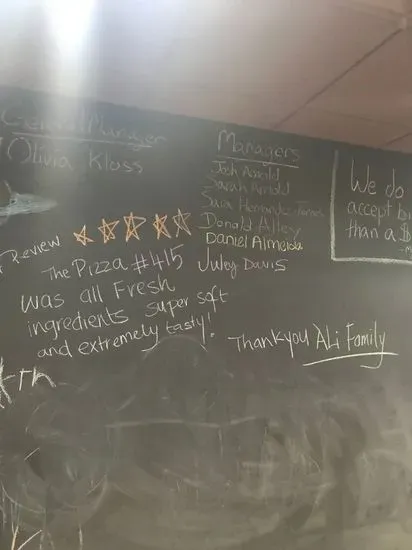 General Manager
Olivia Kloss
Managers
Josh Arnold
Sarah Arnold
Sara Hernandez
Donald Alley
Daniel Almeida
Juley Davis
We do
accept b
than a $
Review
The Pizza #415
was all Fresh
ingredients super soft
and extremely tasty!
Thankyou ALi Family